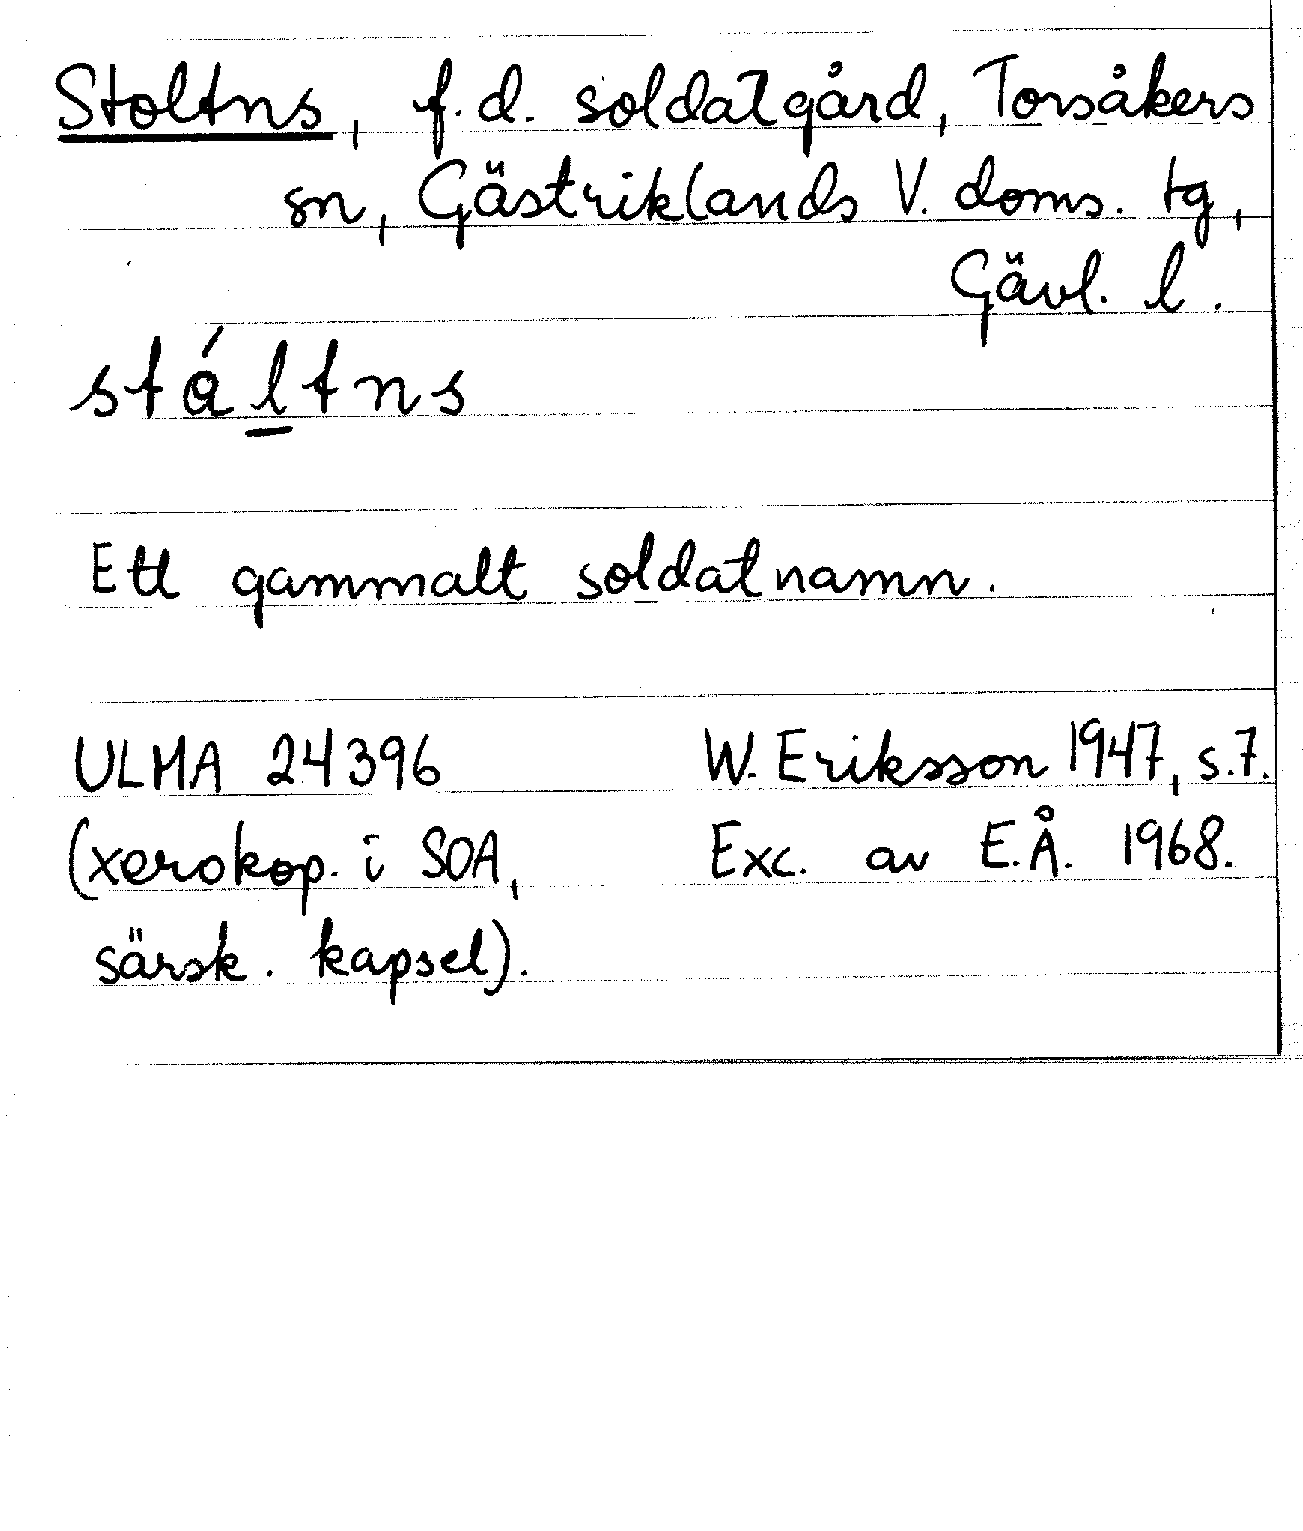 Stoltns, f.d. soldatgård, Torsåkers
sn, Gästriklands V. doms. tg,
Gävl. l.
stá̊l̲tns
Ett gammalt soldatnamn.
ULMA 24396 W. Eriksson 1947, s.7.
(xerokop. i SOA, Exc. av E.Å. 1968.
särsk. kapsel).